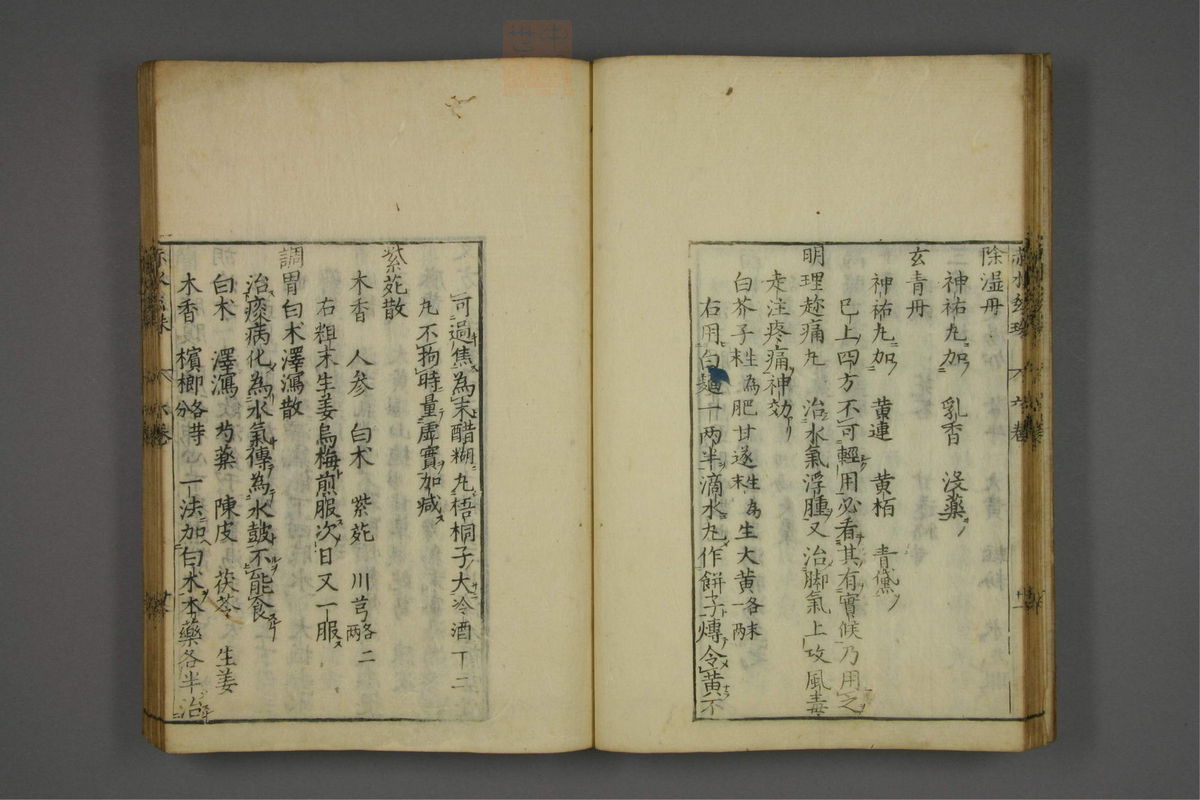 除濕丹
神祐丸加 乳香 沒藥
玄青丹
神祐丸加 黄連 黄栢 青黛
巳上四方不可輕用必看其有實候乃用之
明理趂痛丸 治水氣浮腫又治脚氣上攻風毒
走注疼痛神効
白芥子末 生為肥甘遂末 生為生大黄各末一两
右用白麵一两半滴水丸作餅子煿令黄不
可過焦為末醋糊丸梧桐子大冷酒下二
九不拘時量虚實加减
紫菀散
木香 人参 白术 紫菀 川芎各二两
右粗末生姜烏梅煎服次日又一服
調胃白术澤瀉散
治痰病化為水氣傳為水皷不能食
白术 澤瀉 芍藥 陳皮 茯苓 生姜
木香 檳榔各等分 一法加白术木藥各半治